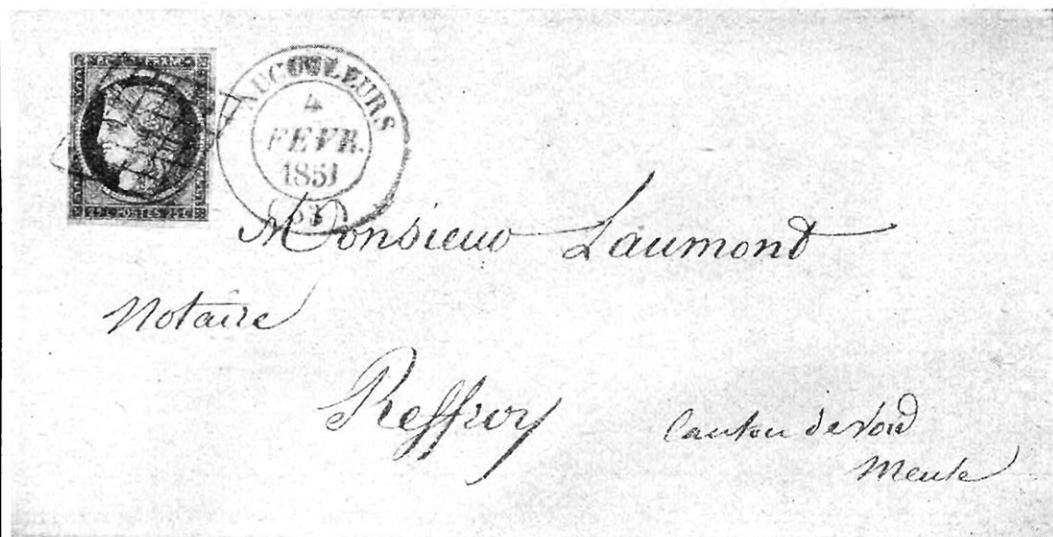 25 C POSTES 25 C
VAUCOULEURS
4
FEVR.
1851
(53)
Monsieur Laumont
Notaire
Reffroy
Canton de Void
Meuse